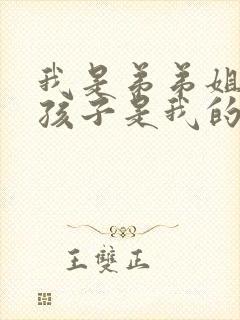 我是弟弟姐
孩子是我的
王雙正